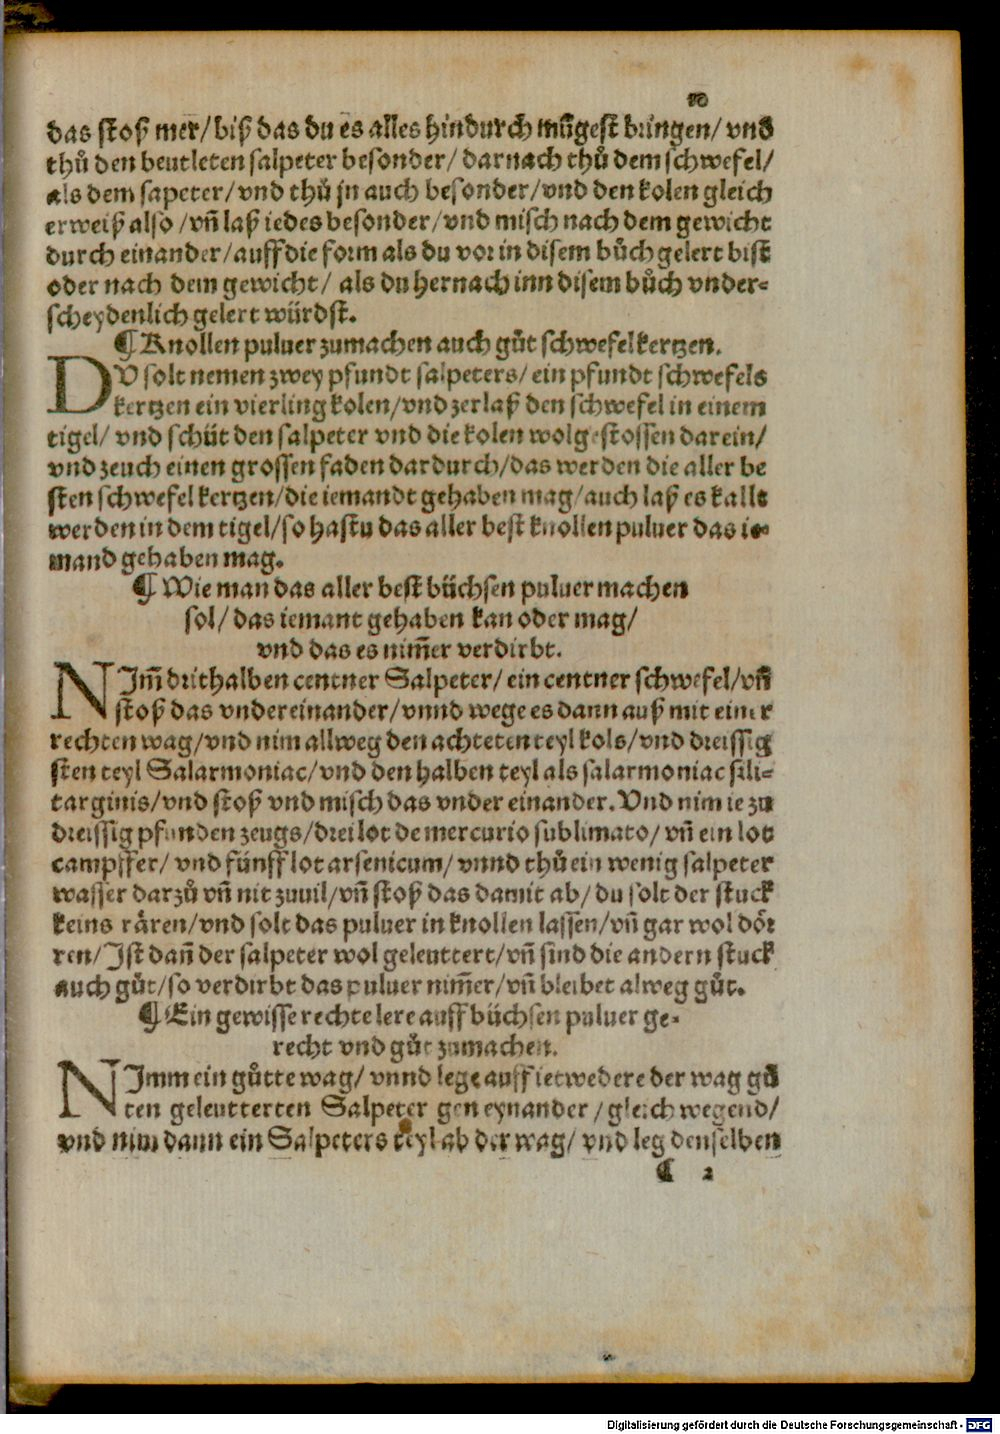 das stoß mer/ biß das du es alles hindurch mügest bringen/ vnd
thů den beutleten salpeter besonder/ darnach thů dem schwefel/
als dem sapeter/ vnd thů jn auch besonder/ vnd den kolen gleich
erweiß also / vñ laß iedes besonder/ vnd misch nach dem gewicht
durch einander/ auff die form als du vor in disem bůch gelert bist
oder nach dem gewicht/ als du hernach inn disem bůch vnder-
scheydenlich gelert würdst.
¶ Knollen puluer zumachen auch gůt schwefelkertzen.
DV solt nemen zwey pfundt salpeters/ ein pfundt schwefels
kertzen ein vierling kolen/ vnd zerlaß den schwefel in einem
tigel/ vnd schüt den salpeter vnd die kolen wolgestossen darein/
vnd zeuch einen grossen faden dardurch/ das werden die aller be
sten schwefel kertzen/ die iemandt gehaben mag/ auch laß es kallt
werden in dem tigel/ so hastu das aller best knollen puluer das ie-
mand gehaben mag.
¶ Wie man das aller best büchsen puluer machen
sol/ das iemant gehaben kan oder mag/
vnd das es nim̄er verdirbt.
NIm̄ drithalben centner Salpeter/ ein centner schwefel/ vñ
stoß das vndereinander/ vnnd wege es dann auß mit einer
rechten wag/ vnd nim allweg den achteten teyl kols/ vnd dreissig
sten teyl Salarmoniac/ vnd den halben teyl als salarmoniac sili-
targinis/ vnd stoß vnd misch das vnder einander. Vnd nim ie zu
dreissig pfunden zeugs/ drei lot de mercurio sublimato/ vñ ein lot
campffer/ vnd fünff lot arsenicum/ vnnd thů ein wenig salpeter
wasser darzů vñ nit zuuil/ vñ stoß das damit ab/ du solt der stuck
keins rären/ vnd solt das puluer in knollen lassen/ vñ gar wol dör
ren/ Ist dañ der salpeter wol geleuttert/ vñ sind die andern stuck
auch gůt/ so verdirbt das puluer nim̄er/ vñ bleibet alweg gůt.
¶ Ein gewisse rechte lere auff büchsen puluer ge-
recht vnd gůt zumachen.
NImm ein gůtte wag/ vnnd lege auff ietwedere der wag gů
ten geleutterten Salpeter gen eynander / gleich wegend/
vnd nim dann ein Salpeters teyl ab der wag/ vnd leg denselben
¶ 2
Digitalisierung gefördert durch die Deutsche Forschungsgemeinschaft - DFG